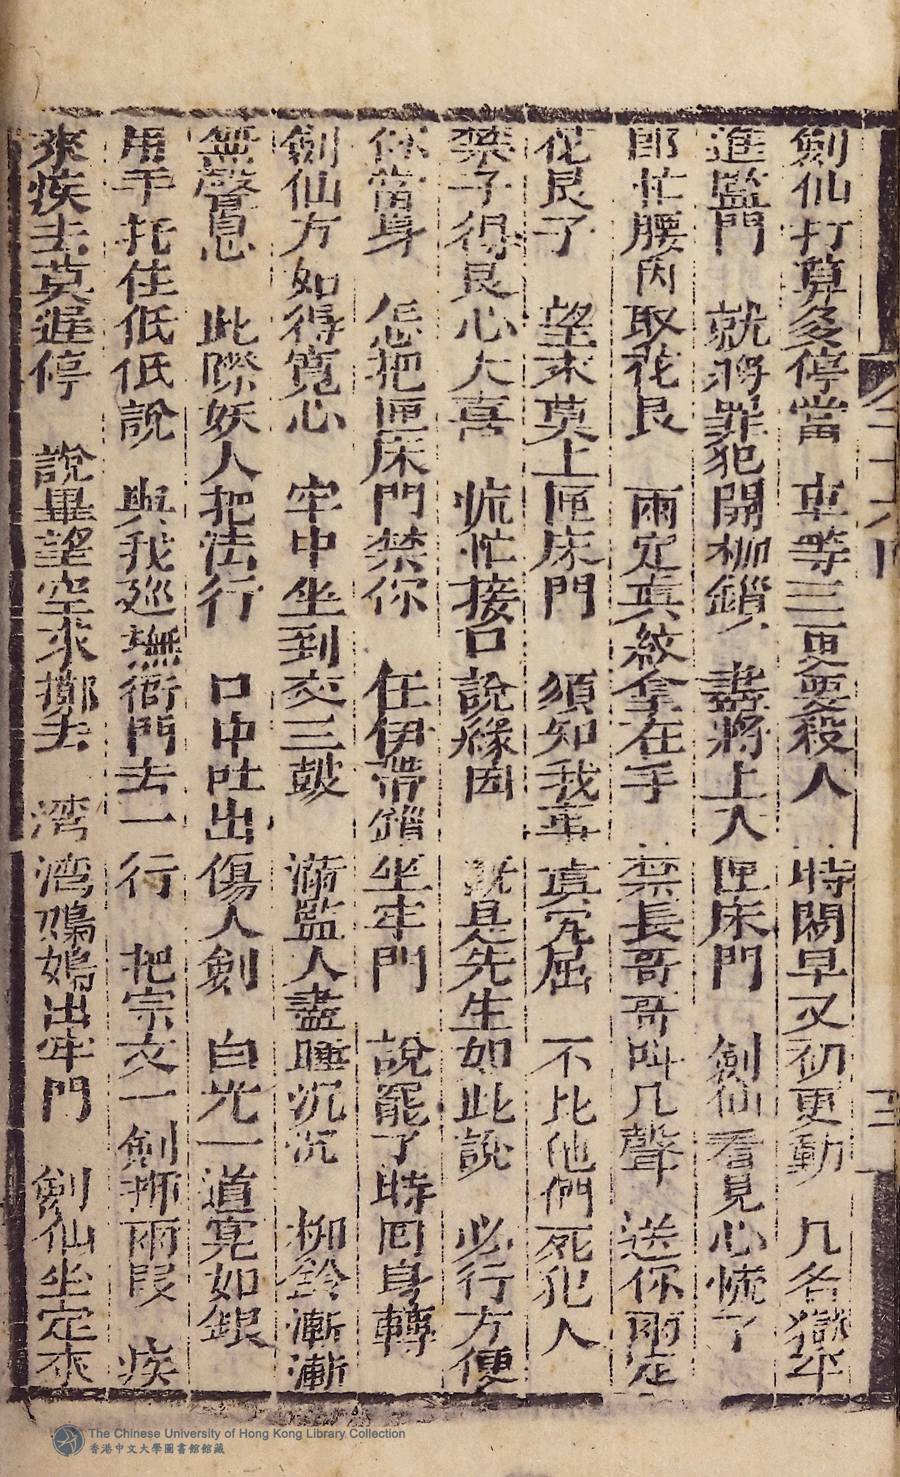 劍仙打算多停當　專等三更要殺人　時間早又初更動　几名獄卒
進監門　就將罪犯開枷鎖　盡將上入匣床門　劍仙看見心慌了
即忙腰內取花艮　兩定真紋拿在手　禁長哥哥叫几聲　送你兩定
花艮子　望求莫上匣床門　須知我事真冤屈　不比他們死犯人
禁子得艮心大喜　慌忙接口說緣因　既是先生如此說　必行方便
你當身　怎把匣床門禁你　任伊帶鎖坐牢門　說罷了時囘身轉
劍仙方如得寬心　牢中坐到交三鼓　滿監人盡睡沉沉　柳鈴漸漸
無聲息　此際妖人把法行　口中吐出傷人劍　白光一道亮如銀
用手托住低低說　與我廵撫衙門去一行　把宗文一劍揮兩段　疾
來疾去莫遲停　說畢望空來擲去　湾湾鴉鴉出牢門　劍仙坐定來
The Chinese University of Hong Kong Library Collection
香港中文大學圖書館館藏